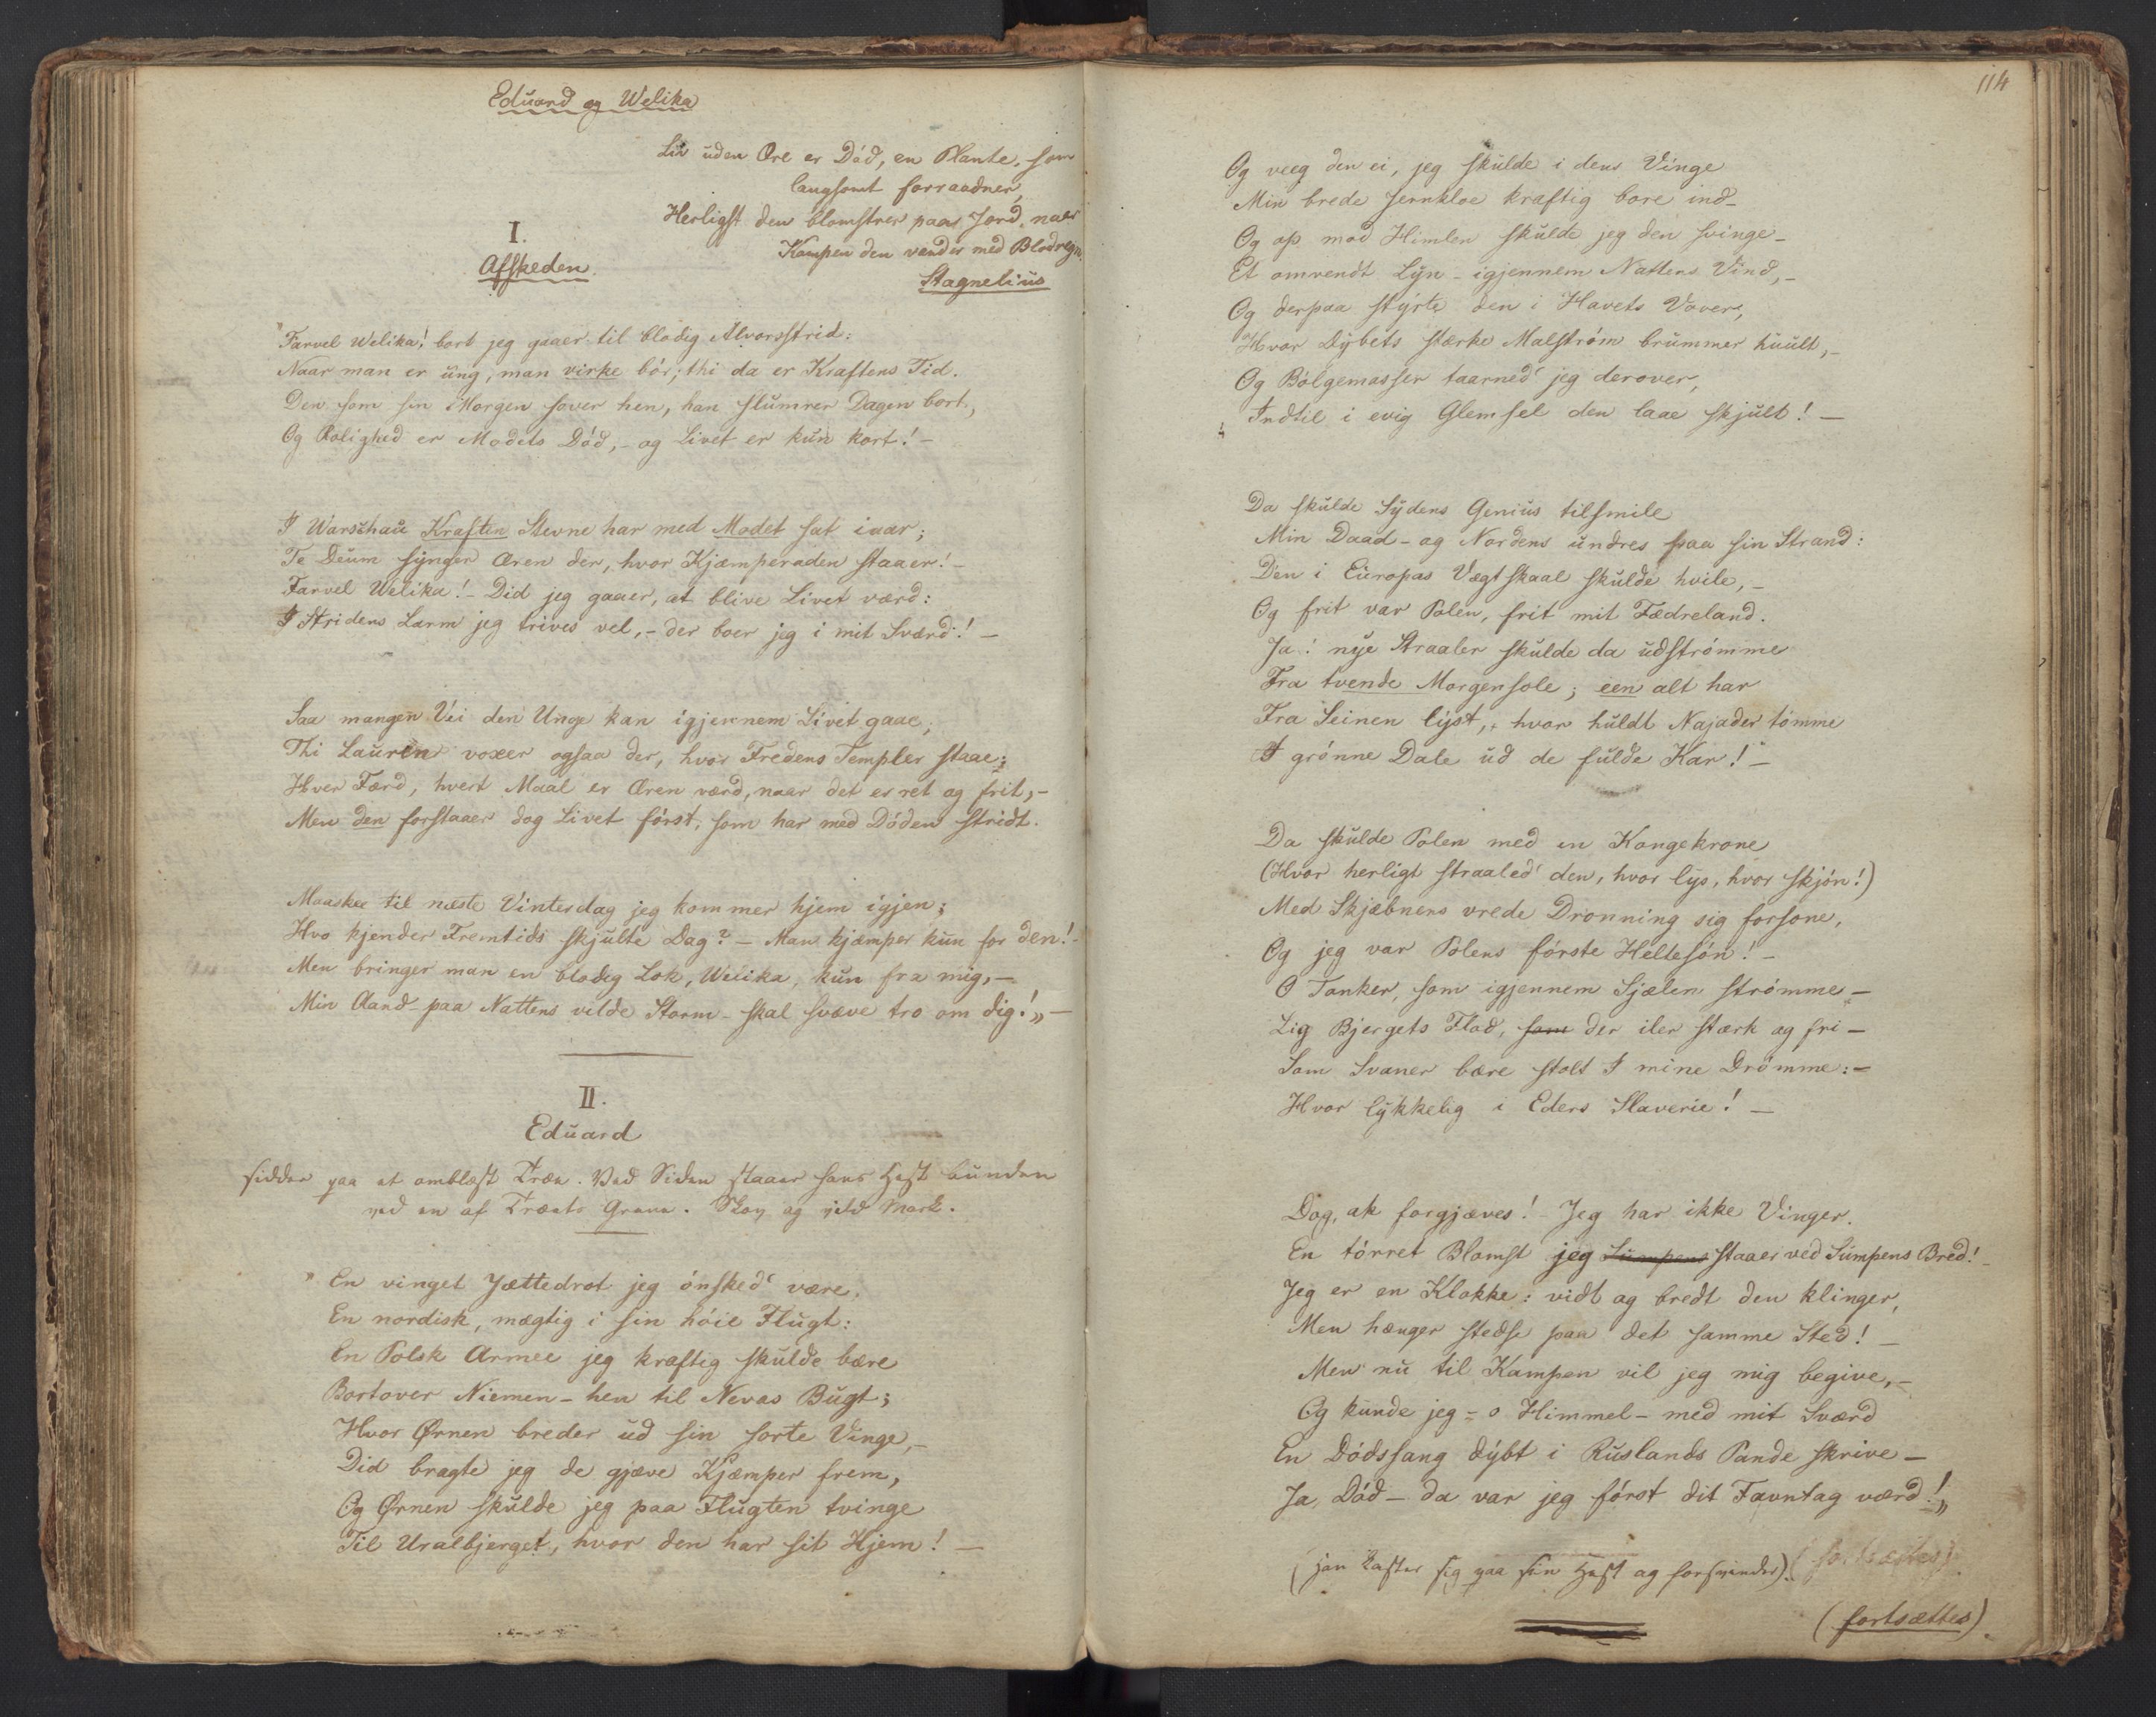 Eduard og Welika
Liv uden Ære er Död, en Plante, som
langsomt forraadner,
Herligst den blomstrer paa Jord, naar
Kampen den vander med Blodregn.
Stagnelius
I.
Afskeden.
"Farvel Welika! bort jeg gaaer til blodig Alvorsstrid:
Naar man er ung, man virke bör; thi da er Kraftens Tid.
Den som sin Morgen sover hen, han slumrer Dagen bort,
Og Rolighed er Modets Död, – og Livet er kun kort! –
I Warschau Kraften Stevne har med Modet sat ivaar;
Te Deum synger Æren der, hvor Kjæmperaden staaer! –
Farvel Welika! – Did jeg gaaer, at blive Livet værd:
I Stridens Larm jeg trives vel, – der boer jeg i mit Sværd! –
Saa mangen Vei den Unge kan igjennem Livet gaae;
Thi Lauren voxer ogsaa der, hvor Fredens Templer staae;
Hver Færd, hvert Maal er Æren værd, naar det er ret og frit, –
Men den forstaaer dog Livet först, som har med Döden stridt.
Maaskee til næste Vinterdag jeg kommer hjem igjen;
Hvo kjender Fremtids skjulte Dag? – Man kjæmper kun for den! –
Men bringer man en blodig Lok, Welika, kun fra mig, –
Min Aand – paa Nattens vilde Storm – skal svæve tro om dig!„ –
II.
Eduard
sidder paa et omblæst Træe. Ved Siden staaer hans Hest bunden
ved en af Træets Grene. Skov og vild Mark.
"En vinget Jættedrot jeg önsked' være,
En nordisk, mægtig i sin höie Flugt:
En Polsk Armee jeg kraftig skulde bære
Bortover Niemen – hen til Nevas Bugt;
Hvor Ørnen breder ud sin sorte Vinge, –
Did bragte jeg de gjæve Kjæmper frem,
Og Ørnen skulde jeg paa Flugten tvinge
Til Uralbjerget, hvor den har sit Hjem! –
114
Og veeg den ei, jeg skulde i dens Vinge
Min brede Jernkloe kraftig bore ind –
Og op mod Himlen skulde jeg den svinge –
Et omvendt Lyn – igjennem Nattens Vind, –
Og derpaa styrte den i Havets Vover,
Hvor Dybets stærke Malström brummer huult, –
Og Bölgemasser taarned' jeg derover,
Indtil i evig Glemsel den laae skjult! –
Da skulde Sydens Genius tilsmile
Min Daad – og Nordens undres paa sin Strand:
Den i Europas Vægtskaal skulde hvile, –
Og frit var Polen, frit mit Fædreland.
Ja! nye Straaler skulde da udströmme
Fra tvende Morgensole; een alt har
Fra Seinen lyst, hvor huldt Najader tömme
I grönne Dale ud de fulde Kar! –
Da skulde Polen med en Kongekrone
(Hvor herligt straaled' den, hvor lys, hvor skjön!)
Med Skjæbnens vrede Dronning sig forsone,
Og jeg var Polens förste Heltesön! –
O Tanker, som igjennem Sjælen strömme –
Lig Bjergets Flod, som der iler stærk og fri –
Som Svaner bære stolt I mine Drömme: –
Hvor lykkelig i Eders Slaverie! –
Dog, ak forgjæves! – Jeg har ikke Vinger.
En törret Blomst jeg Sumpens staaer ved Sumpens Bred! –
Jeg er en Klokke: vidt og bredt den klinger,
Men hænger stedse paa det samme Sted! –
Men nu til Kampen vil jeg mig begive, –
Og kunde jeg – o Himmel – med mit Sværd
En Dödssang dybt i Ruslands Pande skrive –
Ja, Död – da var jeg först dit Favntag værd!„
(han kaster sig paa sin Hest og forsvinder). (fortsættes)
(fortsættes).